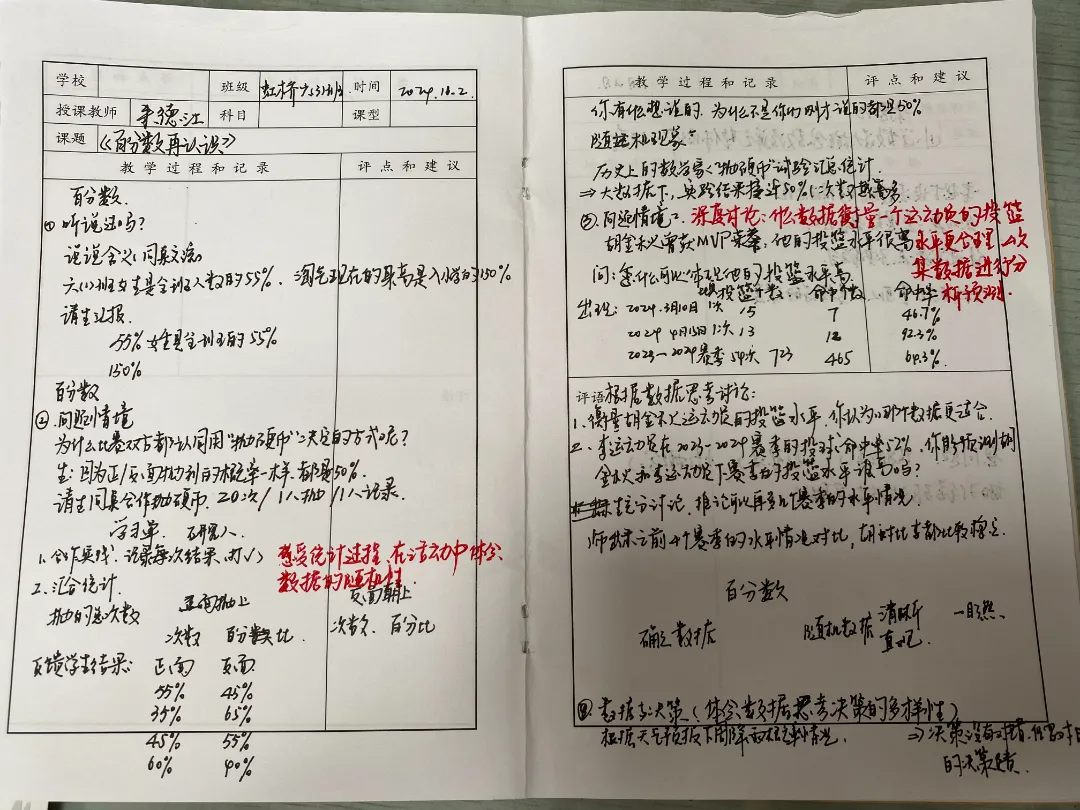 学校 班级 虹桥 时间 2024.10.2
授课教师 李德江 科目 课型
课题 《百分数再认识》
教学过程和记录 评点和建议
百分数.
① 听说过吗?
说说含义(同桌交流)
六(1)班女生是全班人数的55%.
请生汇报.
55% 女生是全班的55%
150%
百分数
②.问题情境
为什么比赛双方都认同用"抛硬币"决定的方式呢?
生:因为正/反面抛到的概率一样.都是50%.
请生同桌合作抛硬币.20次/1人抛/1人记录.
学习单.
1.合作实践:记录每次结果.
感受统计过程,在活动中体会
数据的随机性.
2.汇合统计.
抛的总次数 正面朝上 反面朝上
次数 百分比 次数 百分比
反馈学生结果: 正面 反面
55% 45%
35% 65%
45% 55%
60% 40%
教学过程和记录 评点和建议
你有什么想说的.为什么不是你们刚才说的都是50%
随机现象
历史上的数学家"抛硬币"试验汇总统计.
⇒大数据下,实验结果接近50%
③.问题情境二:
深度讨论:什么数据衡量一个运动员的投篮
水平更合理
数据进行分
析预测.
胡金秋曾获MVP荣誉,他的投篮水平很高
问:凭什么可以体现他的投篮水平高
投篮个数 命中个数 命中率
出现: 2024.3月10日 1次 15 7 46.7%
2024 4月15日 1次 13 12 92.3%
2023-2024赛季 54次 723 465 64.3%
评语 根据数据思考讨论:
1.衡量胡金秋运动员的投篮水平.你认为哪个数据更适合.
2.李运动员在2023-2024赛季的投球命中率52%,你能预测胡
金秋和李运动员下赛季的投篮水平谁高吗?
生充分讨论,推论可以再多几个赛季的水平情况.
师出示之前4个赛季的水平情况对比,胡对比李都比较稳定.
百分数
确定数据 随机数据 清晰 一目了然.
直观.
④.数据与决策(体会数据思考决策的多样性)
根据天气预报下周降雨概率情况. ⇒决策没有对错.
的决策.